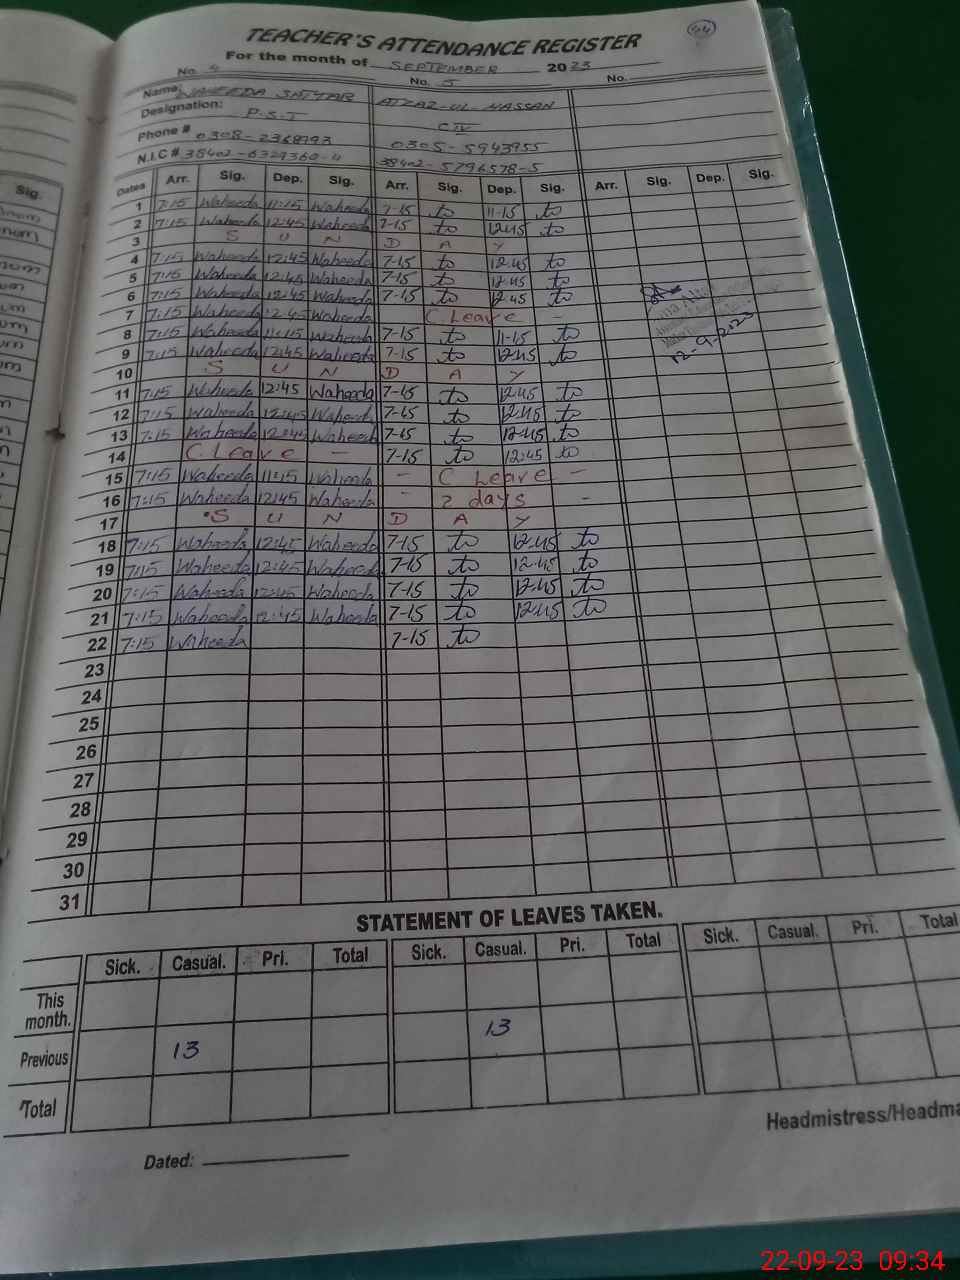 44
TEACHER'S ATTENDANCE REGISTER
For the month of SEPTEMBER 2023
No. 4 No. 5 No.
Name: WAHEEDA SATTAR AIZAZ-UL-HASSAN
Designation: P.S.T
Phone # 0308-2368793 0305-5943955
N.I.C # 38402-6329360-4 38402-5796578-5
Sig. Dates Arr. Sig. Dep. Sig. Arr. Sig. Dep. Sig. Arr. Sig. Dep. Sig.
1 7:15 Waheeda 11:15 Waheeda 7-15 11-15
2 7:15 Waheeda 12:45 Waheeda 7-15 12:45
3 S U N D A Y
4 7:15 Waheeda 12:45 Waheeda 7-15 12:45
5 7:15 Waheeda 12:45 Waheeda 7-15 12:45
6 7:15 Waheeda 12:45 Waheeda 7-15 12:45
7 7:15 Waheeda 12:45 Waheeda C. Leave -
8 7:15 Waheeda 11:15 Waheeda 7-15 11-15
9 7:15 Waheeda 12:45 Waheeda 7-15 12:45
12-9-2023
10 S U N D A Y
11 7:15 Waheeda 12:45 Waheeda 7-15 12:45
12 7:15 Waheeda 12:45 Waheeda 7-15 12:45
13 7:15 Waheeda 12:45 Waheeda 7-15 12:45
14 C. Leave - 7-15 12:45
15 7:15 Waheeda 11:15 Waheeda - C Leave -
16 7:15 Waheeda 12:45 Waheeda - 2 days -
17 S U N D A Y
18 7:15 Waheeda 12:45 Waheeda 7-15 12:45
19 7:15 Waheeda 12:45 Waheeda 7-15 12:45
20 7:15 Waheeda 12:45 Waheeda 7-15 12:45
21 7:15 Waheeda 12:45 Waheeda 7-15 12:45
22 7:15 Waheeda 7-15
23
24
25
26
27
28
29
30
31
STATEMENT OF LEAVES TAKEN.
Sick. Casual. Pri. Total Sick. Casual. Pri. Total Sick. Casual. Pri. Total
This month.
Previous 13 13
Total
Headmistress/Headma
Dated:
22-09-23 09:34